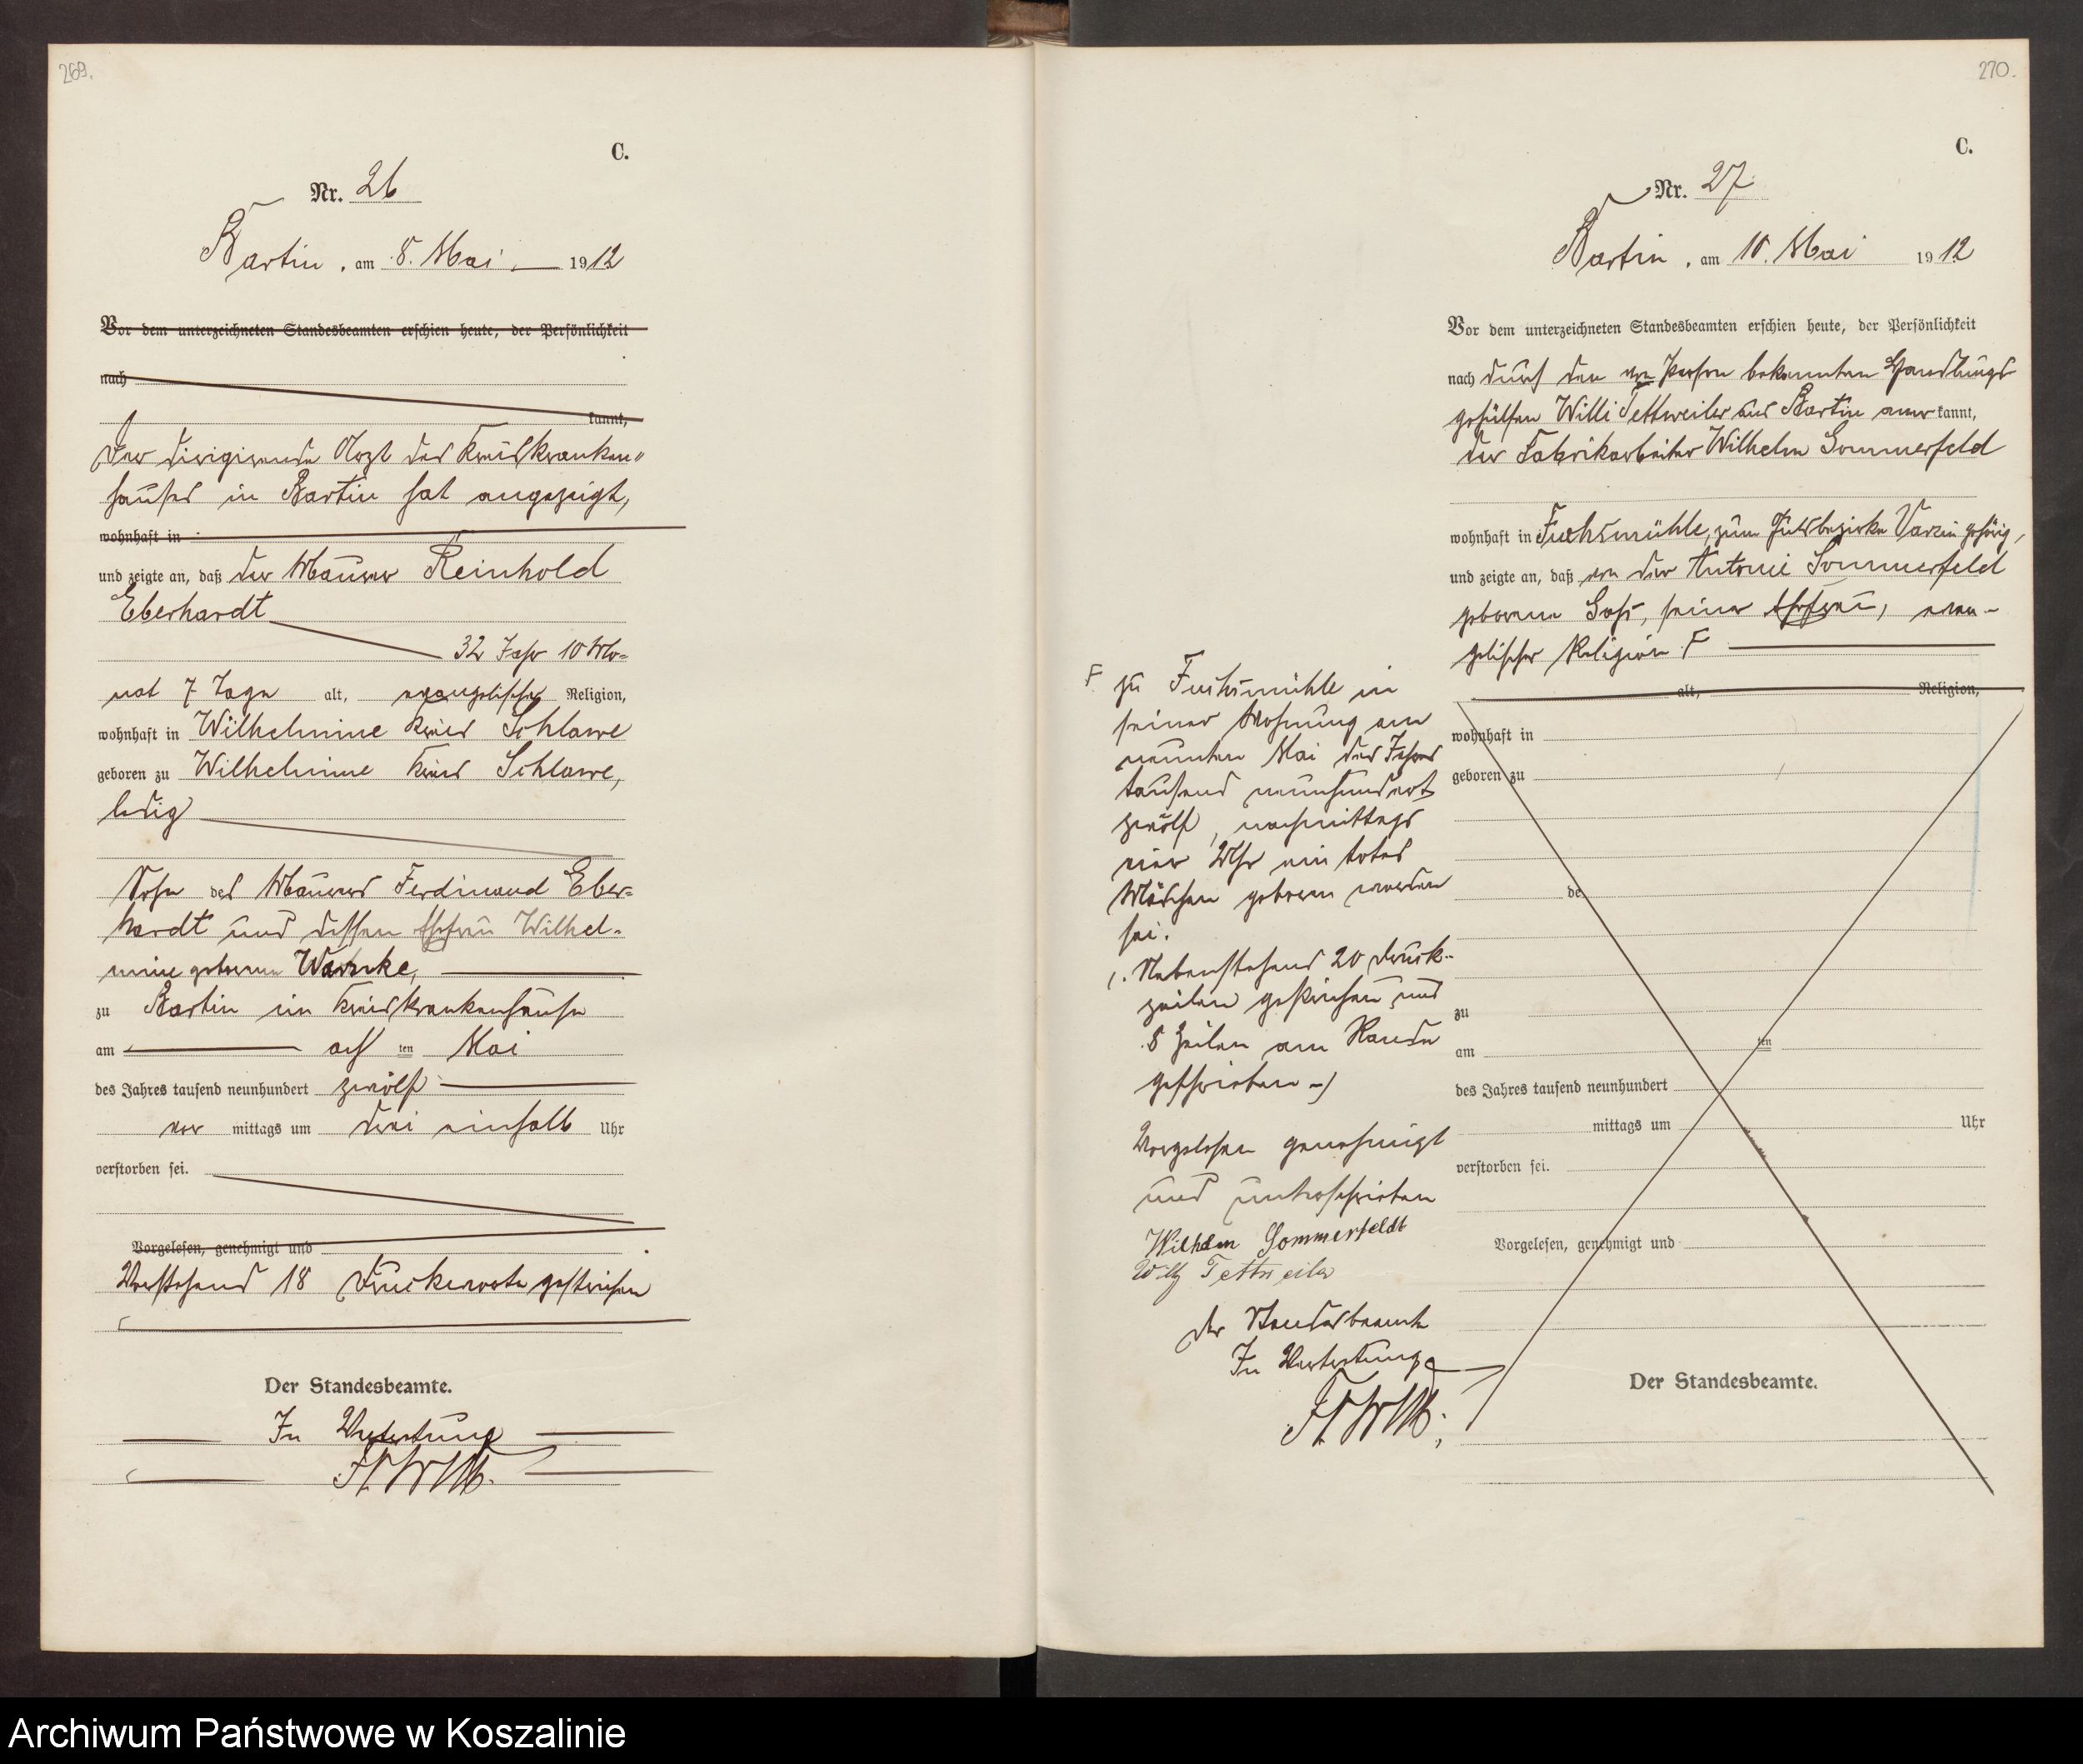 269.
C.
Nr. 26
Bartin, am 8. Mai 1912
Vor dem unterzeichneten Standesbeamten erschien heute, der Persönlichkeit
nach
kannt,
Der dirigirende Arzt des Kreiskranken=
hauses in Bartin hat angezeigt,
wohnhaft in
und zeigte an, daß der Maurer Reinhold
Eberhardt
32 Jahr 10 Mo=
nat 7 Tage alt, evangelischer Religion,
wohnhaft in Wilhelmine Kreis Schlawe
geboren zu Wilhelmine Kreis Schlawe,
ledig
Sohn des Maurers Ferdinand Eber=
hardt und dessen Ehefrau Wilhel=
mine geborene Warnke,
zu Bartin im Kreiskrankenhause
am acht ten Mai
des Jahres tausend neunhundert zwölf
vor mittags um drei einhalb Uhr
verstorben sei.
Vorgelesen, genehmigt und
Vorstehend 18 Druckworte gestrichen
Der Standesbeamte.
In Vertretung
270.
C.
Nr. 27
Bartin, am 10. Mai 1912
Vor dem unterzeichneten Standesbeamten erschien heute, der Persönlichkeit
nach durch den von Person bekannten Handlungs
gehülfen Willi Tettweiler aus Bartin aner kannt,
der Fabrikarbeiter Wilhelm Sommerfeld
wohnhaft in Fuchsmühle, zum Gutsbezirke Varzin gehörig,
und zeigte an, daß von der Antonie Sommerfeld
geborene Saß, seiner Ehefrau, evan-
gelischer Religion F
alt, Religion,
wohnhaft in
geboren zu
de
zu
am ten
des Jahres tausend neunhundert
mittags um Uhr
verstorben sei.
Vorgelesen, genehmigt und
Der Standesbeamte.
F zu Fuchsmühle in
seiner Wohnung am
neunten Mai des Jahres
tausend neunhundert
zwölf, nachmittags
vier Uhr ein totes
Mädchen geboren worden
sei.
(. Nebenstehend 20 Druck-
zeilen gestrichen und
8 Zeilen am Rande
geschrieben -)
Vorgelesen genehmigt
und unterschrieben
Wilhelm Sommerfeldt
Willy Tettweiler
Der Standesbeamte
In Vertretung
Archiwum Państwowe w Koszalinie